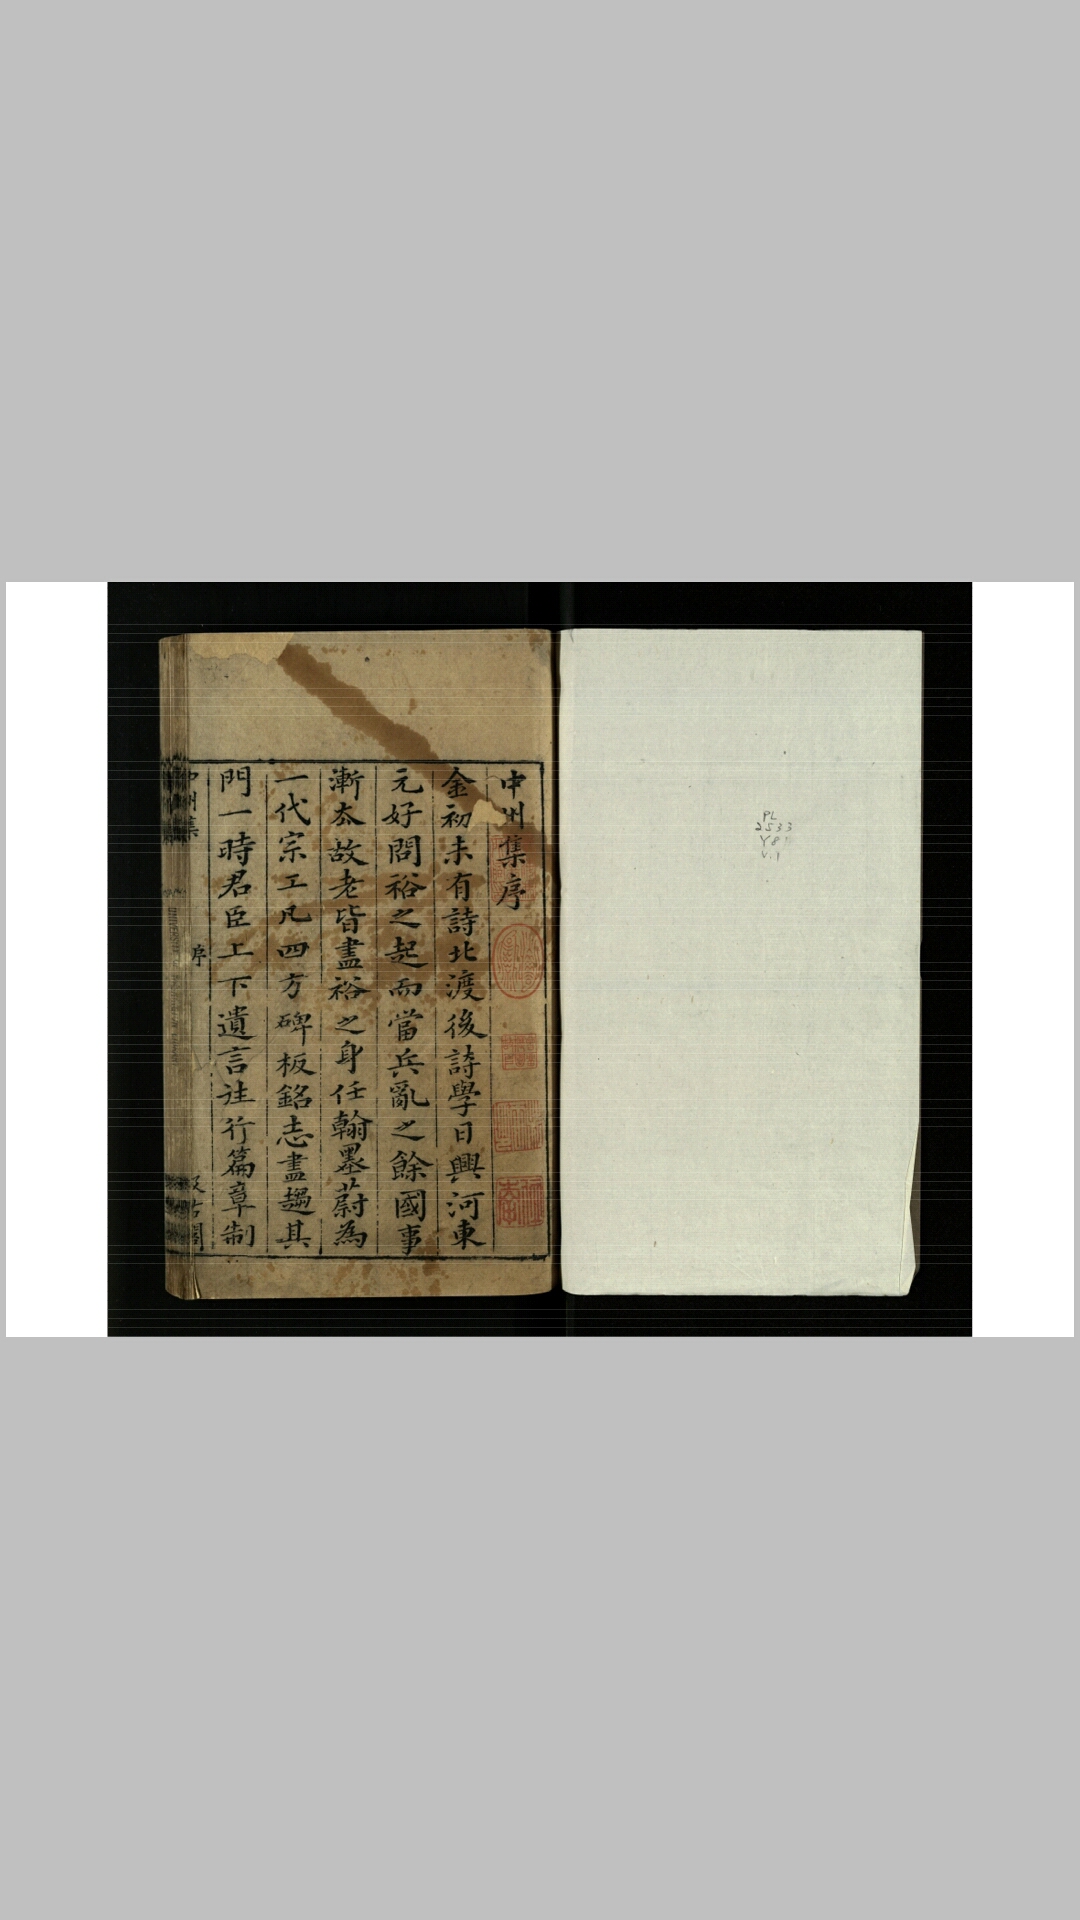 PL
2533
Y8
v.1
中州集序
金初未有詩北渡後詩學日興河東
元好問裕之起而當兵亂之餘國事
漸太故老皆盡裕之身任翰墨蔚為
一代宗工凡四方碑板銘志盡趨其
門一時君臣上下遺言往行篇章制
中州集
序
汲古閣